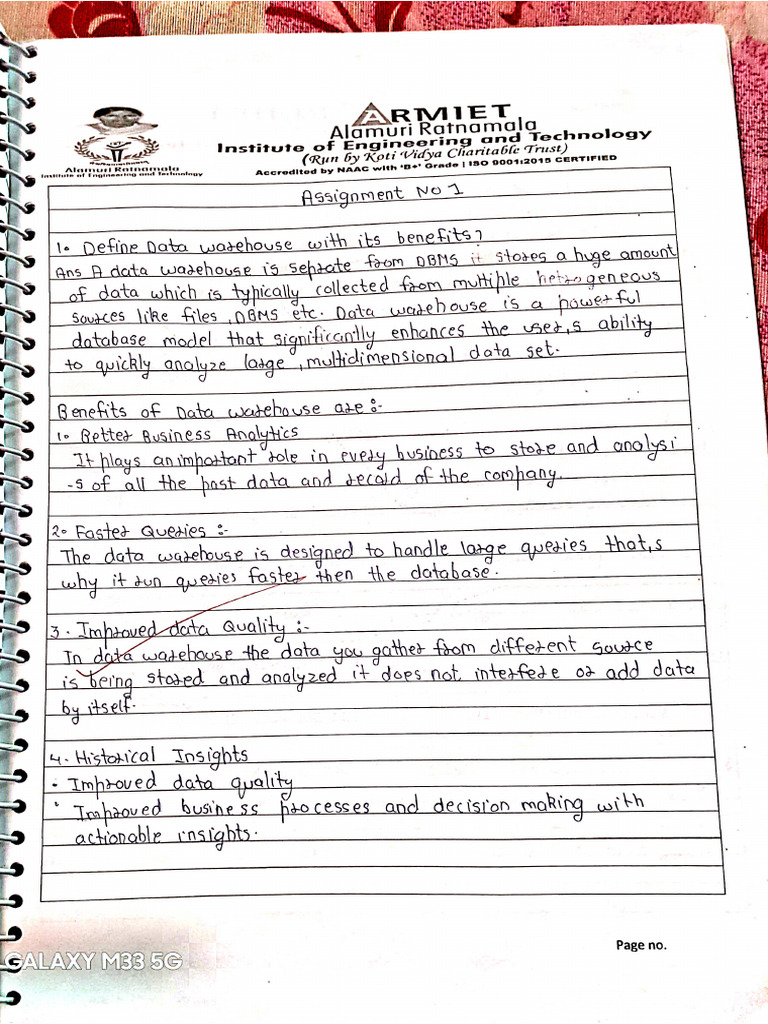 ARMIET
Alamuri Ratnamala
Institute of Engineering and Technology
(Run by Koti Vidya Charitable Trust)
Accredited by NAAC with 'B+' Grade | ISO 9001:2015 CERTIFIED
Alamuri Ratnamala
Institute of Engineering and Technology
Assignment No 1
1. Define Data warehouse with its benefits?
Ans A data warehouse is seprate from DBMS it stores a huge amount
of data which is typically collected from multiple hetrogeneous
sources like files, DBMS etc. Data warehouse is a powerful
database model that significantly enhances the user,s ability
to quickly analyze large ,multidimensional data set.
Benefits of Data warehouse are :-
1. Better Business Analytics
It plays an important role in every business to store and analysi
-s of all the past data and record of the company.
2. Faster Queries :-
The data warehouse is designed to handle large queries that,s
why it run queries faster then the database.
3. Improved data Quality :-
In data warehouse the data you gather from different source
is being stored and analyzed it does not interfere or add data
by itself.
4. Historical Insights
· Improved data quality
· Improved business processes and decision making with
actionable insights.
Page no.
GALAXY M33 5G